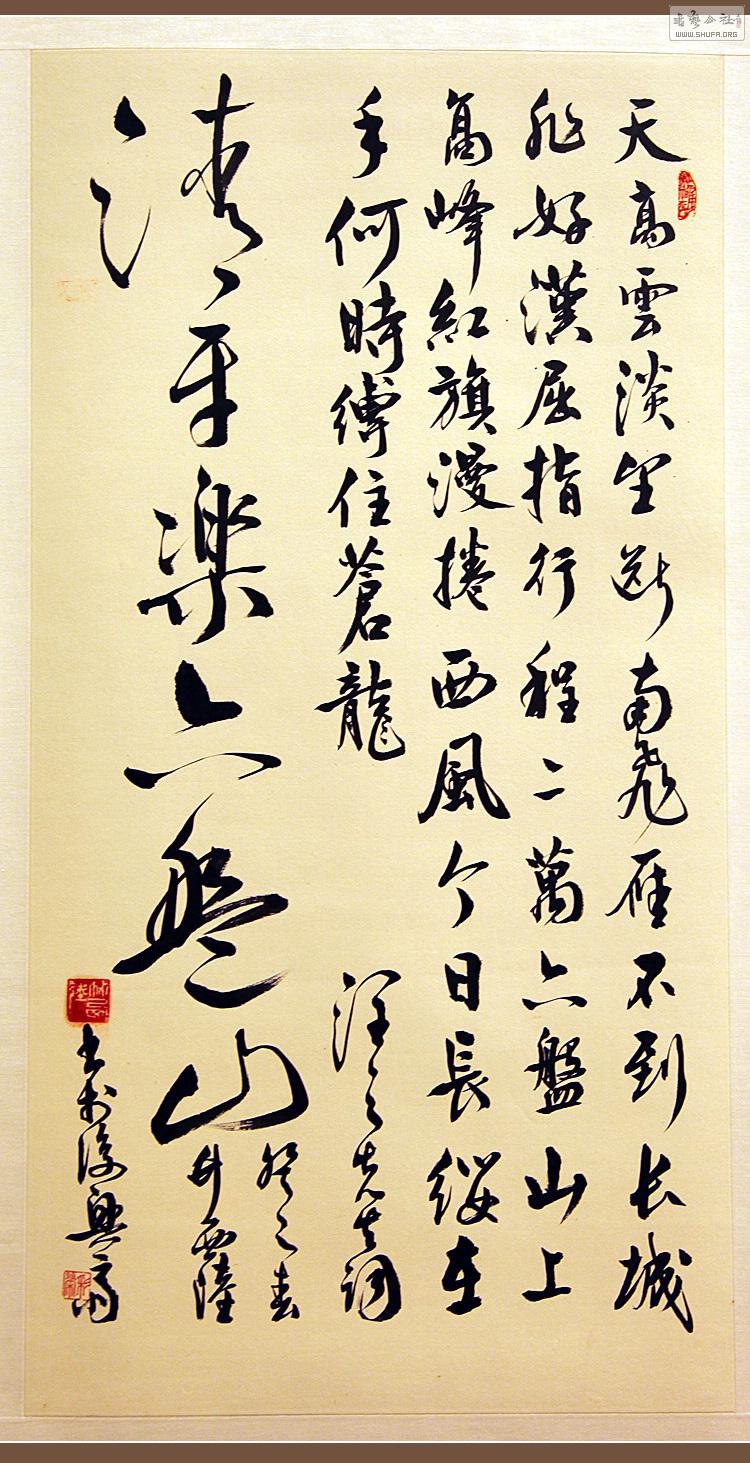 天高雲淡望斷南飛雁不到长城
非好漢屈指行程二萬六盤山上
高峰紅旗漫捲西風今日長纓在
手何時縛住蒼龍
潤之先生詞
清平樂六盤山
春
竹西陸
書於復興齋
书艺公社
WWW.SHUFA.ORG